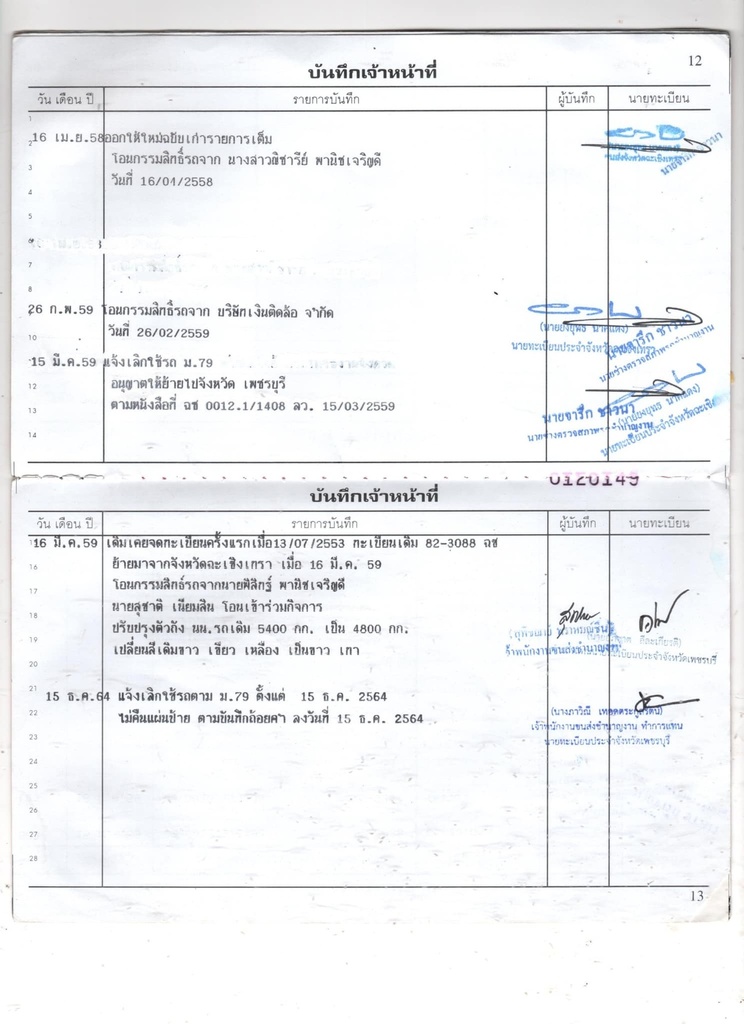 12
บันทึกเจ้าหน้าที่
วัน เดือน ปี รายการบันทึก ผู้บันทึก นายทะเบียน
1
2 16 เม.ย.58 ออกให้ใหม่ฉบับเก่ารายการเต็ม
3 โอนกรรมสิทธิ์รถจาก นางสาวณิชารีย์ พานิชเจริญดี
4 วันที่ 16/04/2558
5
6
7
8
9 26 ก.พ.59 โอนกรรมสิทธิ์รถจาก บริษัทเงินติดล้อ จำกัด
(นายยงยุทธ นาคแดง)
10 วันที่ 26/02/2559
นายทะเบียนประจำจังหวัดฉะเชิงเทรา
นายจารึก ชาวนา
11 15 มี.ค.59 แจ้งเลิกใช้รถ ม.79
12 อนุญาตให้ย้ายไปจังหวัด เพชรบุรี
13 ตามหนังสือที่ ฉช 0012.1/1408 ลว. 15/03/2559
นายจารึก ชาวนา
(นายยงยุทธ นาคแดง)
14
0120149
บันทึกเจ้าหน้าที่
วัน เดือน ปี รายการบันทึก ผู้บันทึก นายทะเบียน
15 16 มี.ค.59 เดิมเคยจดทะเบียนครั้งแรกเมื่อ13/07/2553 ทะเบียนเดิม 82-3088 ฉช
16 ย้ายมาจากจังหวัดฉะเชิงเทรา เมื่อ 16 มี.ค. 59
17 โอนกรรมสิทธิ์รถจากนายพิสิทฐ์ พานิชเจริญดี
18 นายสุชาติ เนียมสิน โอนเข้าร่วมกิจการ
19 ปรับปรุงตัวถัง นน.รถเดิม 5400 กก. เป็น 4800 กก.
20 เปลี่ยนสีเดิมขาว เขียว เหลือง เป็นขาว เทา
เจ้าพนักงานขนส่งชำนาญงาน นายทะเบียนประจำจังหวัดเพชรบุรี
21 15 ธ.ค.64 แจ้งเลิกใช้รถตาม ม.79 ตั้งแต่ 15 ธ.ค. 2564
22 ไม่คืนแผ่นป้าย ตามบันทึกถ้อยคำ ลงวันที่ 15 ธ.ค. 2564
เจ้าพนักงานขนส่งชำนาญงาน ทำการแทน
23 นายทะเบียนประจำจังหวัดเพชรบุรี
24
25
26
27
28
13